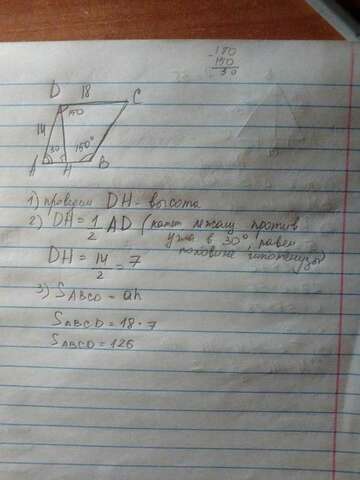 -180
150
30
D 18 C
150
14
30 150°
A H B
1) проведем DH - высота
2) DH = 1/2 AD (катет лежащ. против
угла в 30° равен
половине гипотенузы)
DH = 14/2 = 7
3) S ABCD = ah
S ABCD = 18 · 7
S ABCD = 126